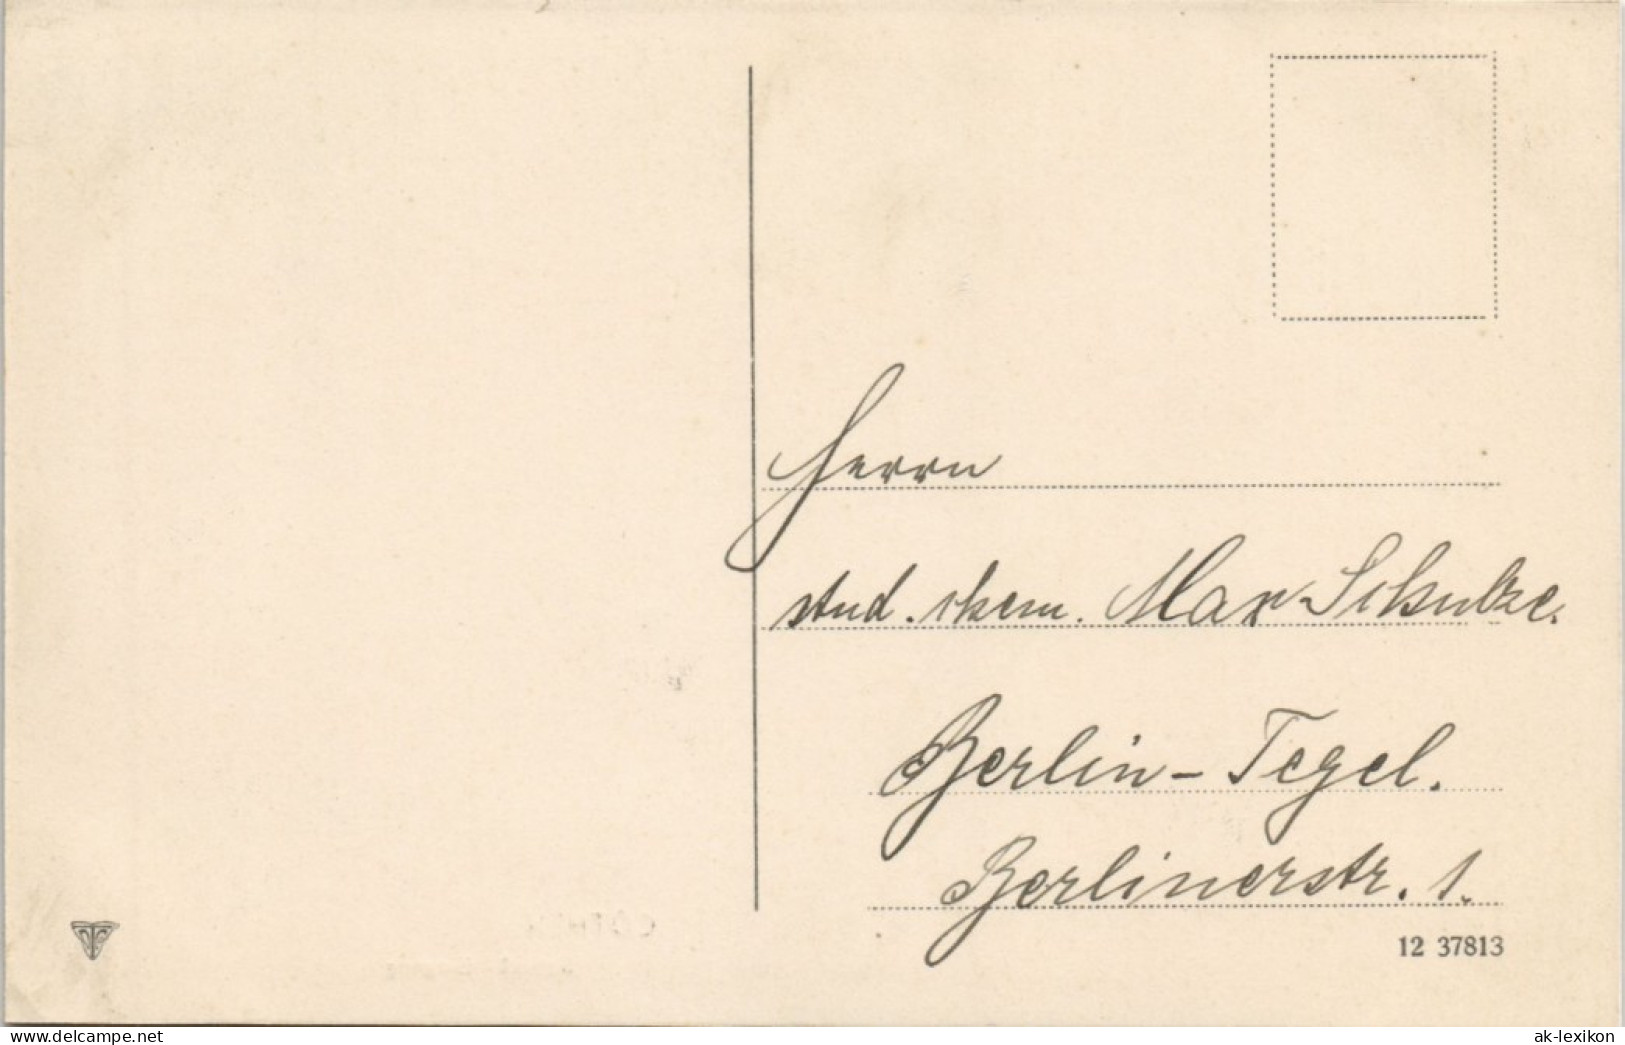 Herrn
stud. chem. Max Schulze.
Berlin-Tegel.
Berlinerstr. 1.
12 37813
www.delcampe.net
ak-lexikon